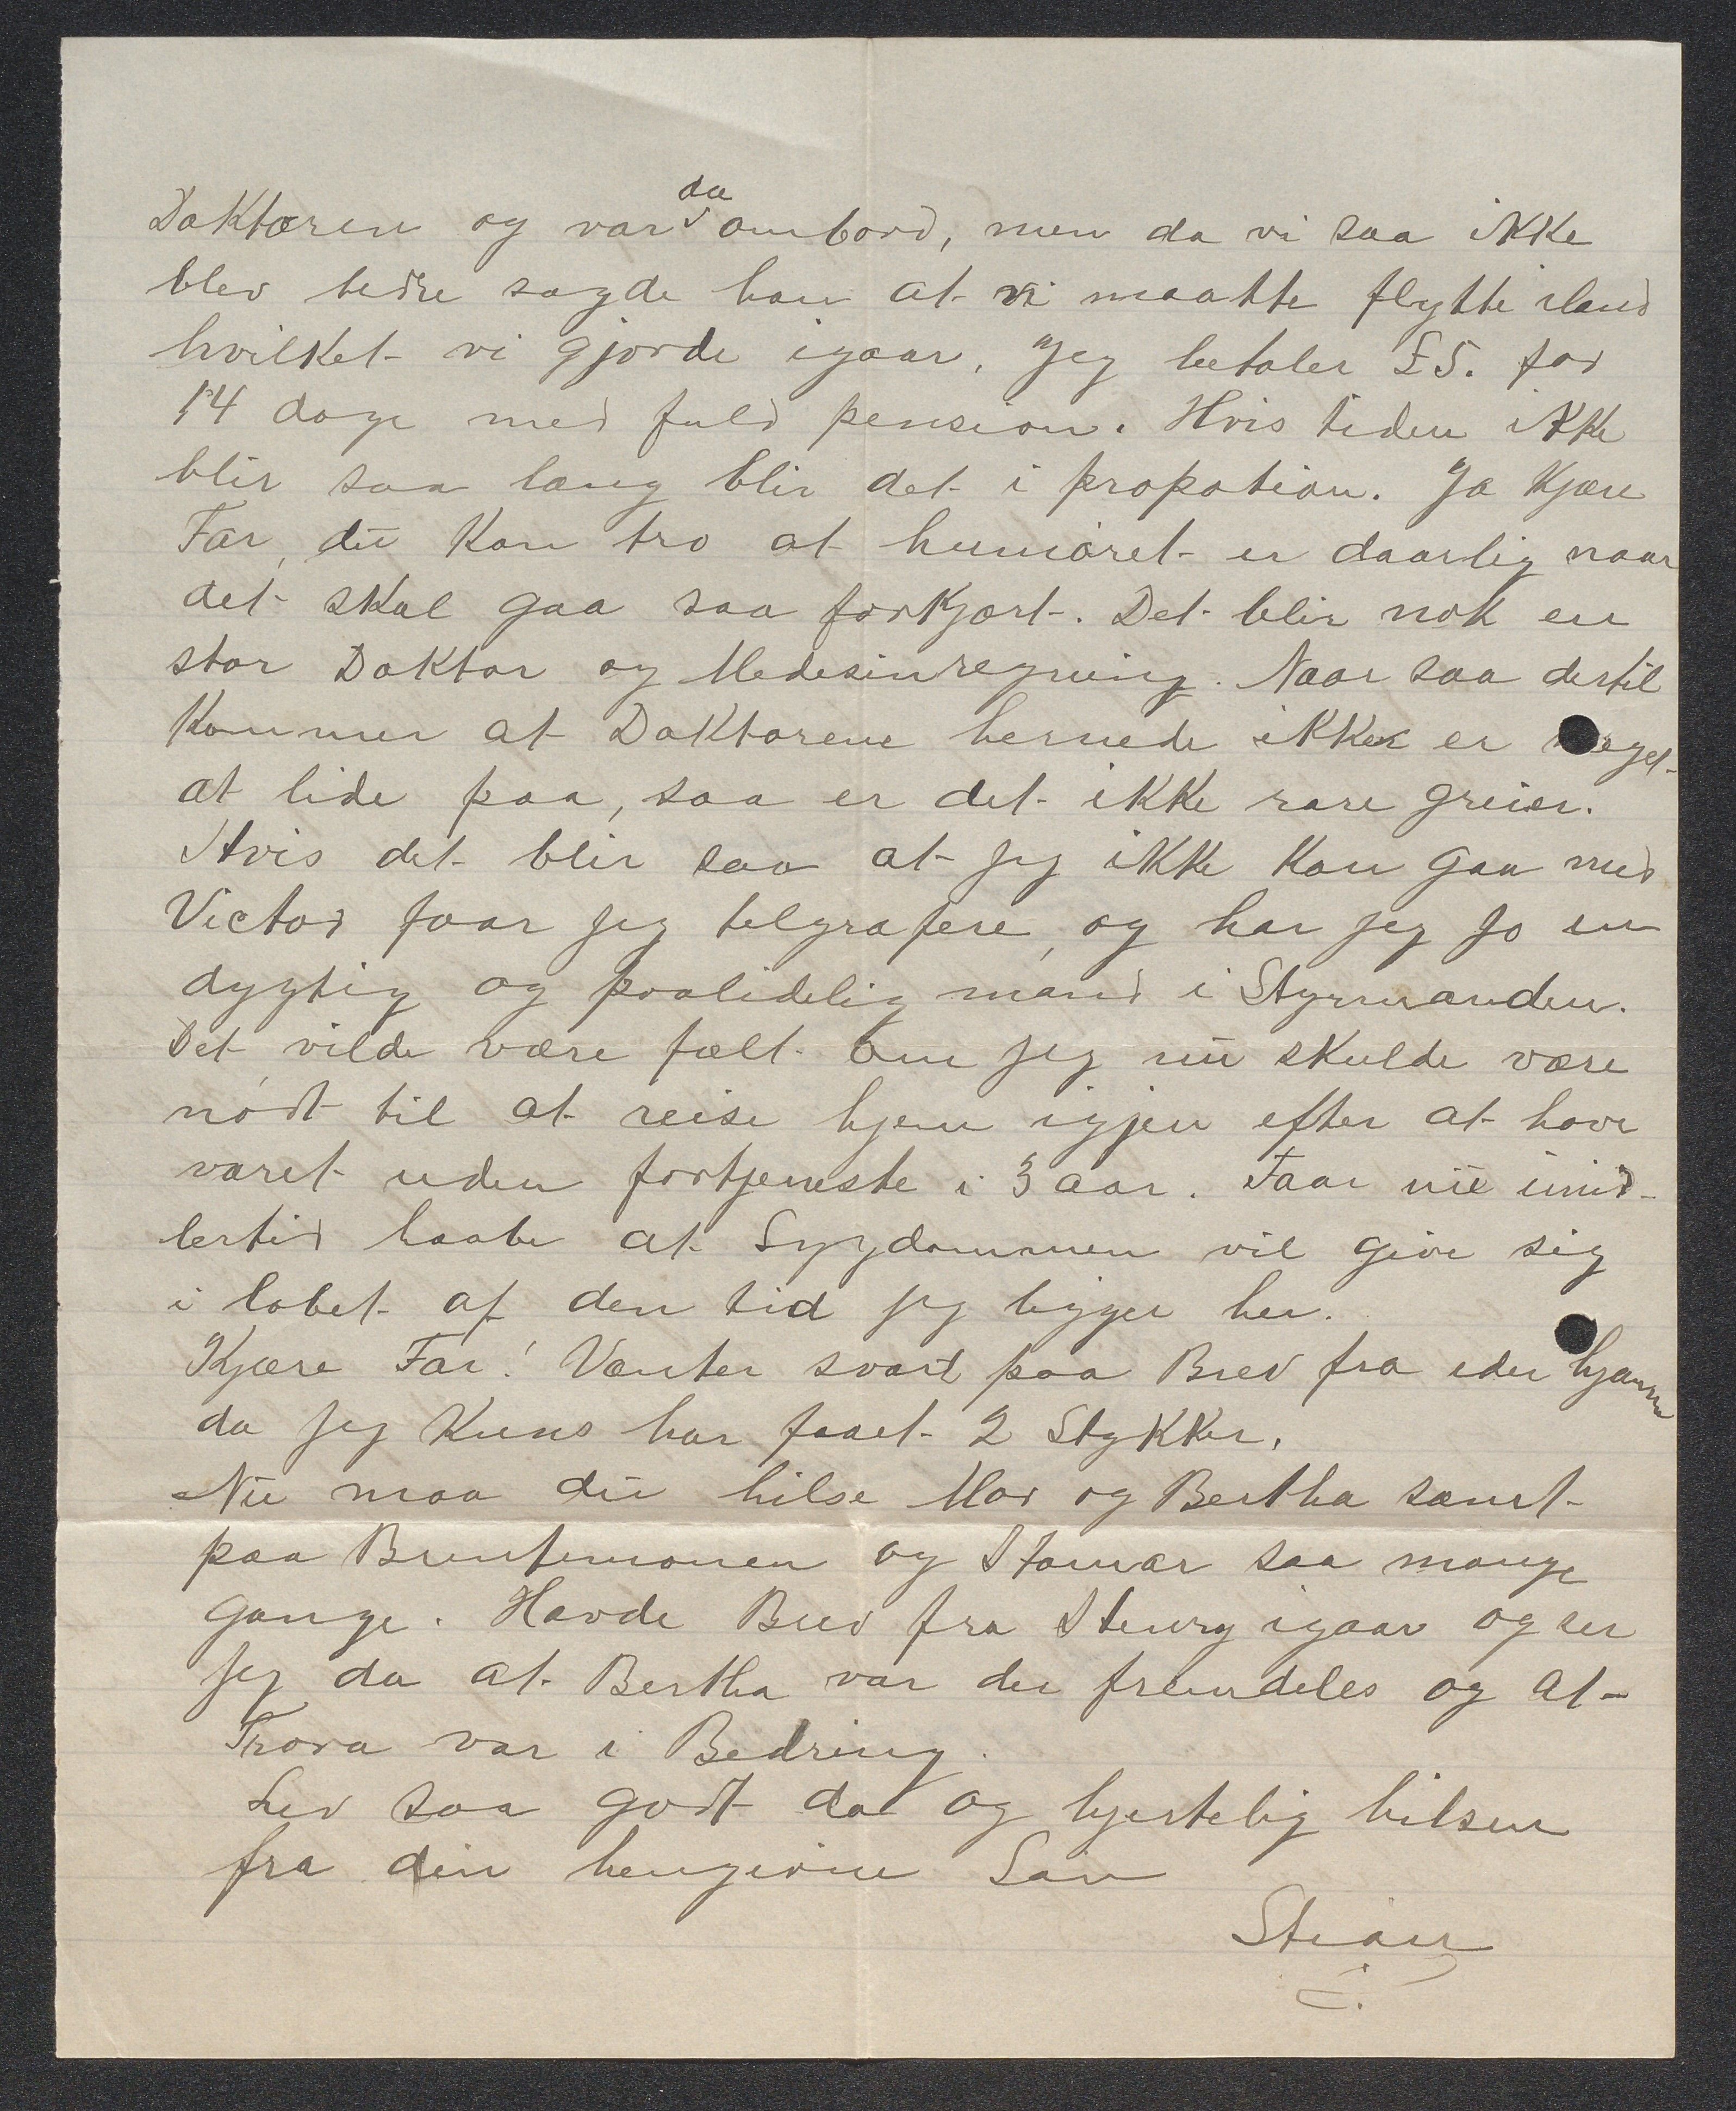 Doktoren og var da ombord, men da vi saa ikke
blev bedre sagde han at vi maatte flytte iland
hvilket vi gjorde igaar. Jeg betaler £5. for
14 dage med fuld pension. Hvis tiden ikke
blir saa lang blir det i propotion. Ja Kjære
Far, du kan tro at humøret er daarlig naar
det skal gaa saa forkjært. Det blir nok en
stor Doktor og Medesinregning. Naar saa dertil
Kommer at Doktorene hernede ikke er meget
at lide paa, saa er det ikke rare greier.
Hvis det blir saa at jeg ikke kan gaa med
Victor faar jeg telgrafere, og har jeg jo en
dygtig og paalidelig mand i Styrmanden.
Det vilde være fælt om jeg nu skulde være
nødt til at reise hjem igjen efter at have
været uden fortjeneste i 3 aar. Faar nu imid-
lertid haabe at Sygdommen vil give sig
i løbet af den tid jeg ligger her.
Kjære Far! Venter svar paa Brev fra eder hjemme
da jeg Kuns har faaet 2 Stykker.
Nu maa du hilse Mor og Bertha samt
paa og saa mange
gange. Havde Brev fra igaar og ser
jeg da at Bertha var der fremdeles og at
var i Bedring.
Lev saa godt da og hjertelig hilsen
fra din hengivne Søn